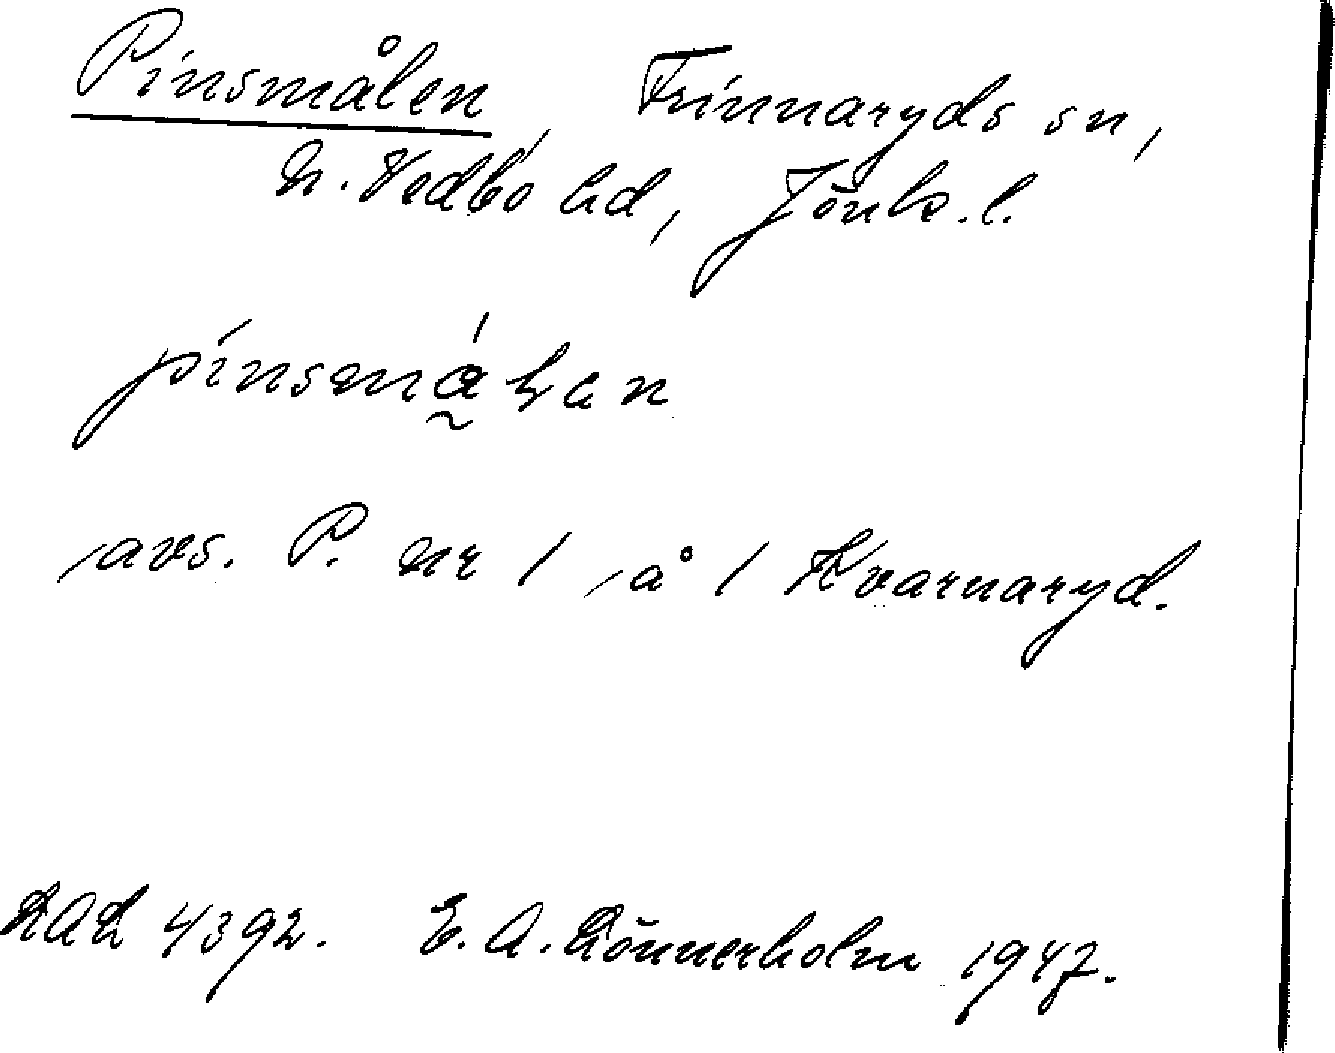 Pinsmålen, Frinnaryds sn,
N. Vedbo hd, Jönk. l.
avs. P. nr 1, å 1 Kvarnaryd.
4392. E. A. Rönnerholm 1947.